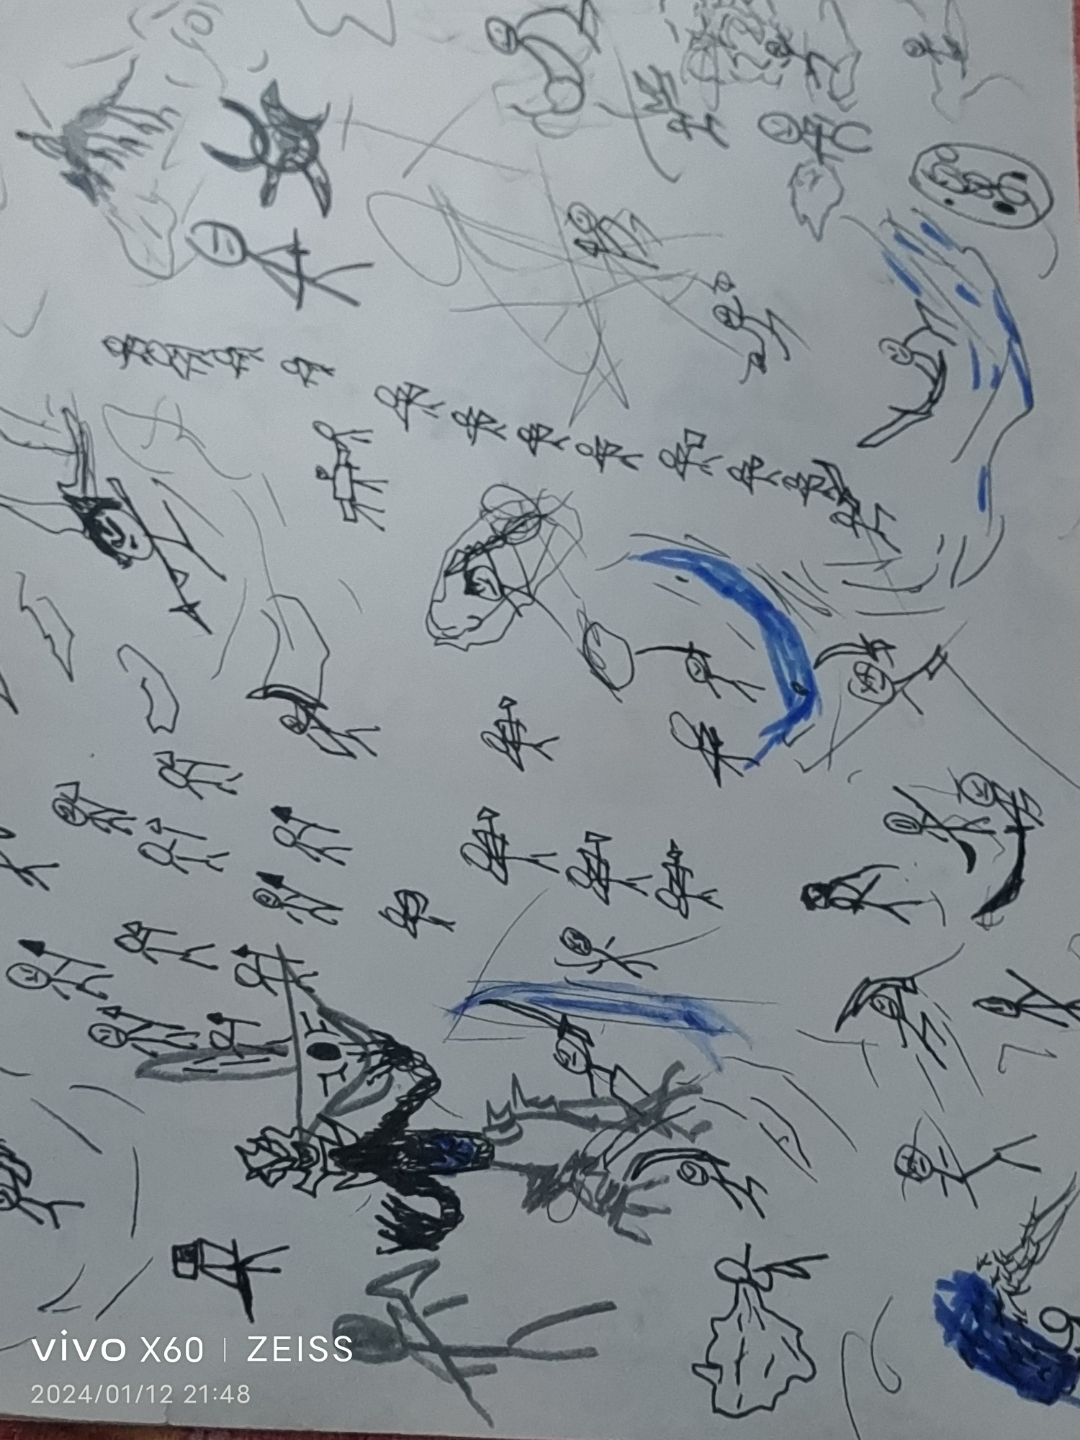 vivo X60 | ZEISS
2024/01/12 21:48